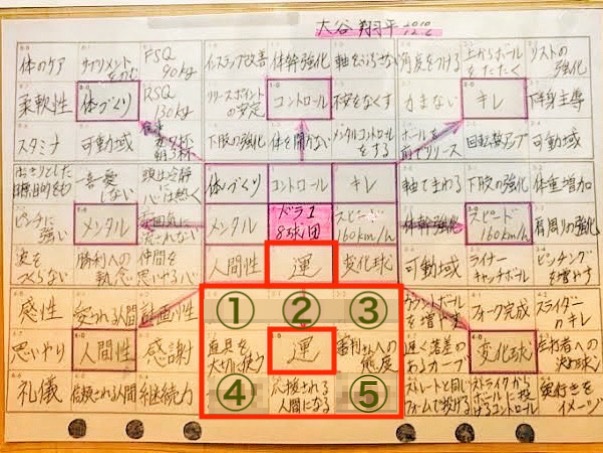 大谷 翔平 2010 12.6
体のケア サプリメントをのむ FSQ 90kg インステップ改善 体幹強化 軸をぶらさない 角度をつける 上からボールをたたく リストの強化
柔軟性 体づくり RSQ 130kg リリースポイントの安定 コントロール 不安をなくす 力まない キレ 下半身主導
スタミナ 可動域 食事 夜7杯 朝3杯 下肢の強化 体を開かない メンタルコントロールをする ボールを前でリリース 回転数アップ 可動域
はっきりとした目標、目的をもつ 一喜一憂しない 頭は冷静に心は熱く 体づくり コントロール キレ 軸でまわる 下肢の強化 体重増加
ピンチに強い メンタル 雰囲気に流されない メンタル ドラ1 8球団 スピード160km/h 体幹強化 スピード160km/h 肩周りの強化
波をつくらない 勝利への執念 仲間を思いやる心 人間性 運 変化球 可動域 ライナーキャッチボール ピッチングを増やす
感性 愛される人間 計画性 ① ② ③ カウントボールを増やす フォーク完成 スライダーのキレ
思いやり 人間性 感謝 道具を大切に使う 運 審判さんへの態度 遅く落差のあるカーブ 変化球 左打者への決め球
礼儀 信頼される人間 継続力 ④ 応援される人間になる ⑤ ストレートと同じフォームで投げる ストライクからボールに投げるコントロール 奥行きをイメージ